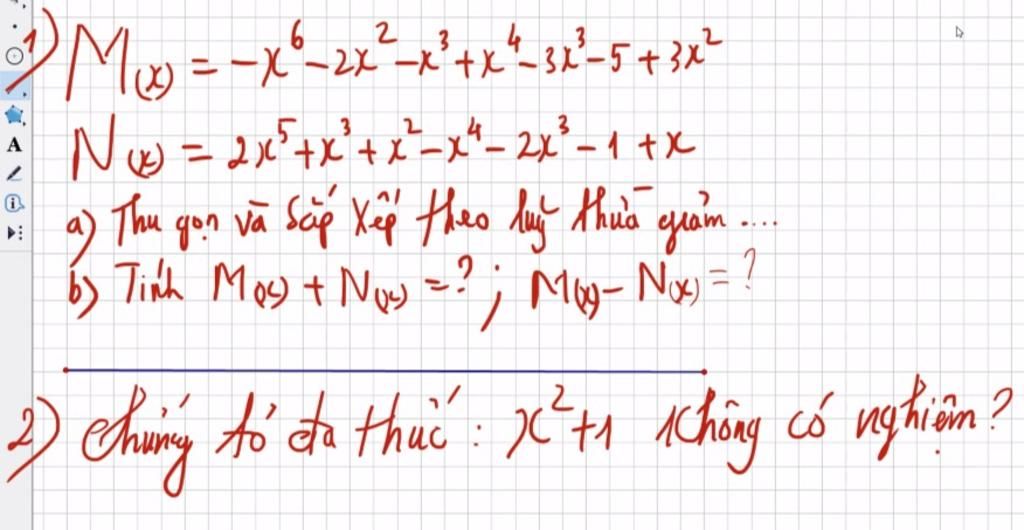 1) M(x) = -x⁶ - 2x² - x³ + x⁴ - 3x³ - 5 + 3x²
N(x) = 2x⁵ + x³ + x² - x⁴ - 2x³ - 1 + x
a) Thu gọn và Sắp Xếp theo luỹ thừa giảm ....
b) Tính M(x) + N(x) = ? ; M(x) - N(x) = ?
2) Chứng tỏ đa thức : x² + 1 không có nghiệm ?
A